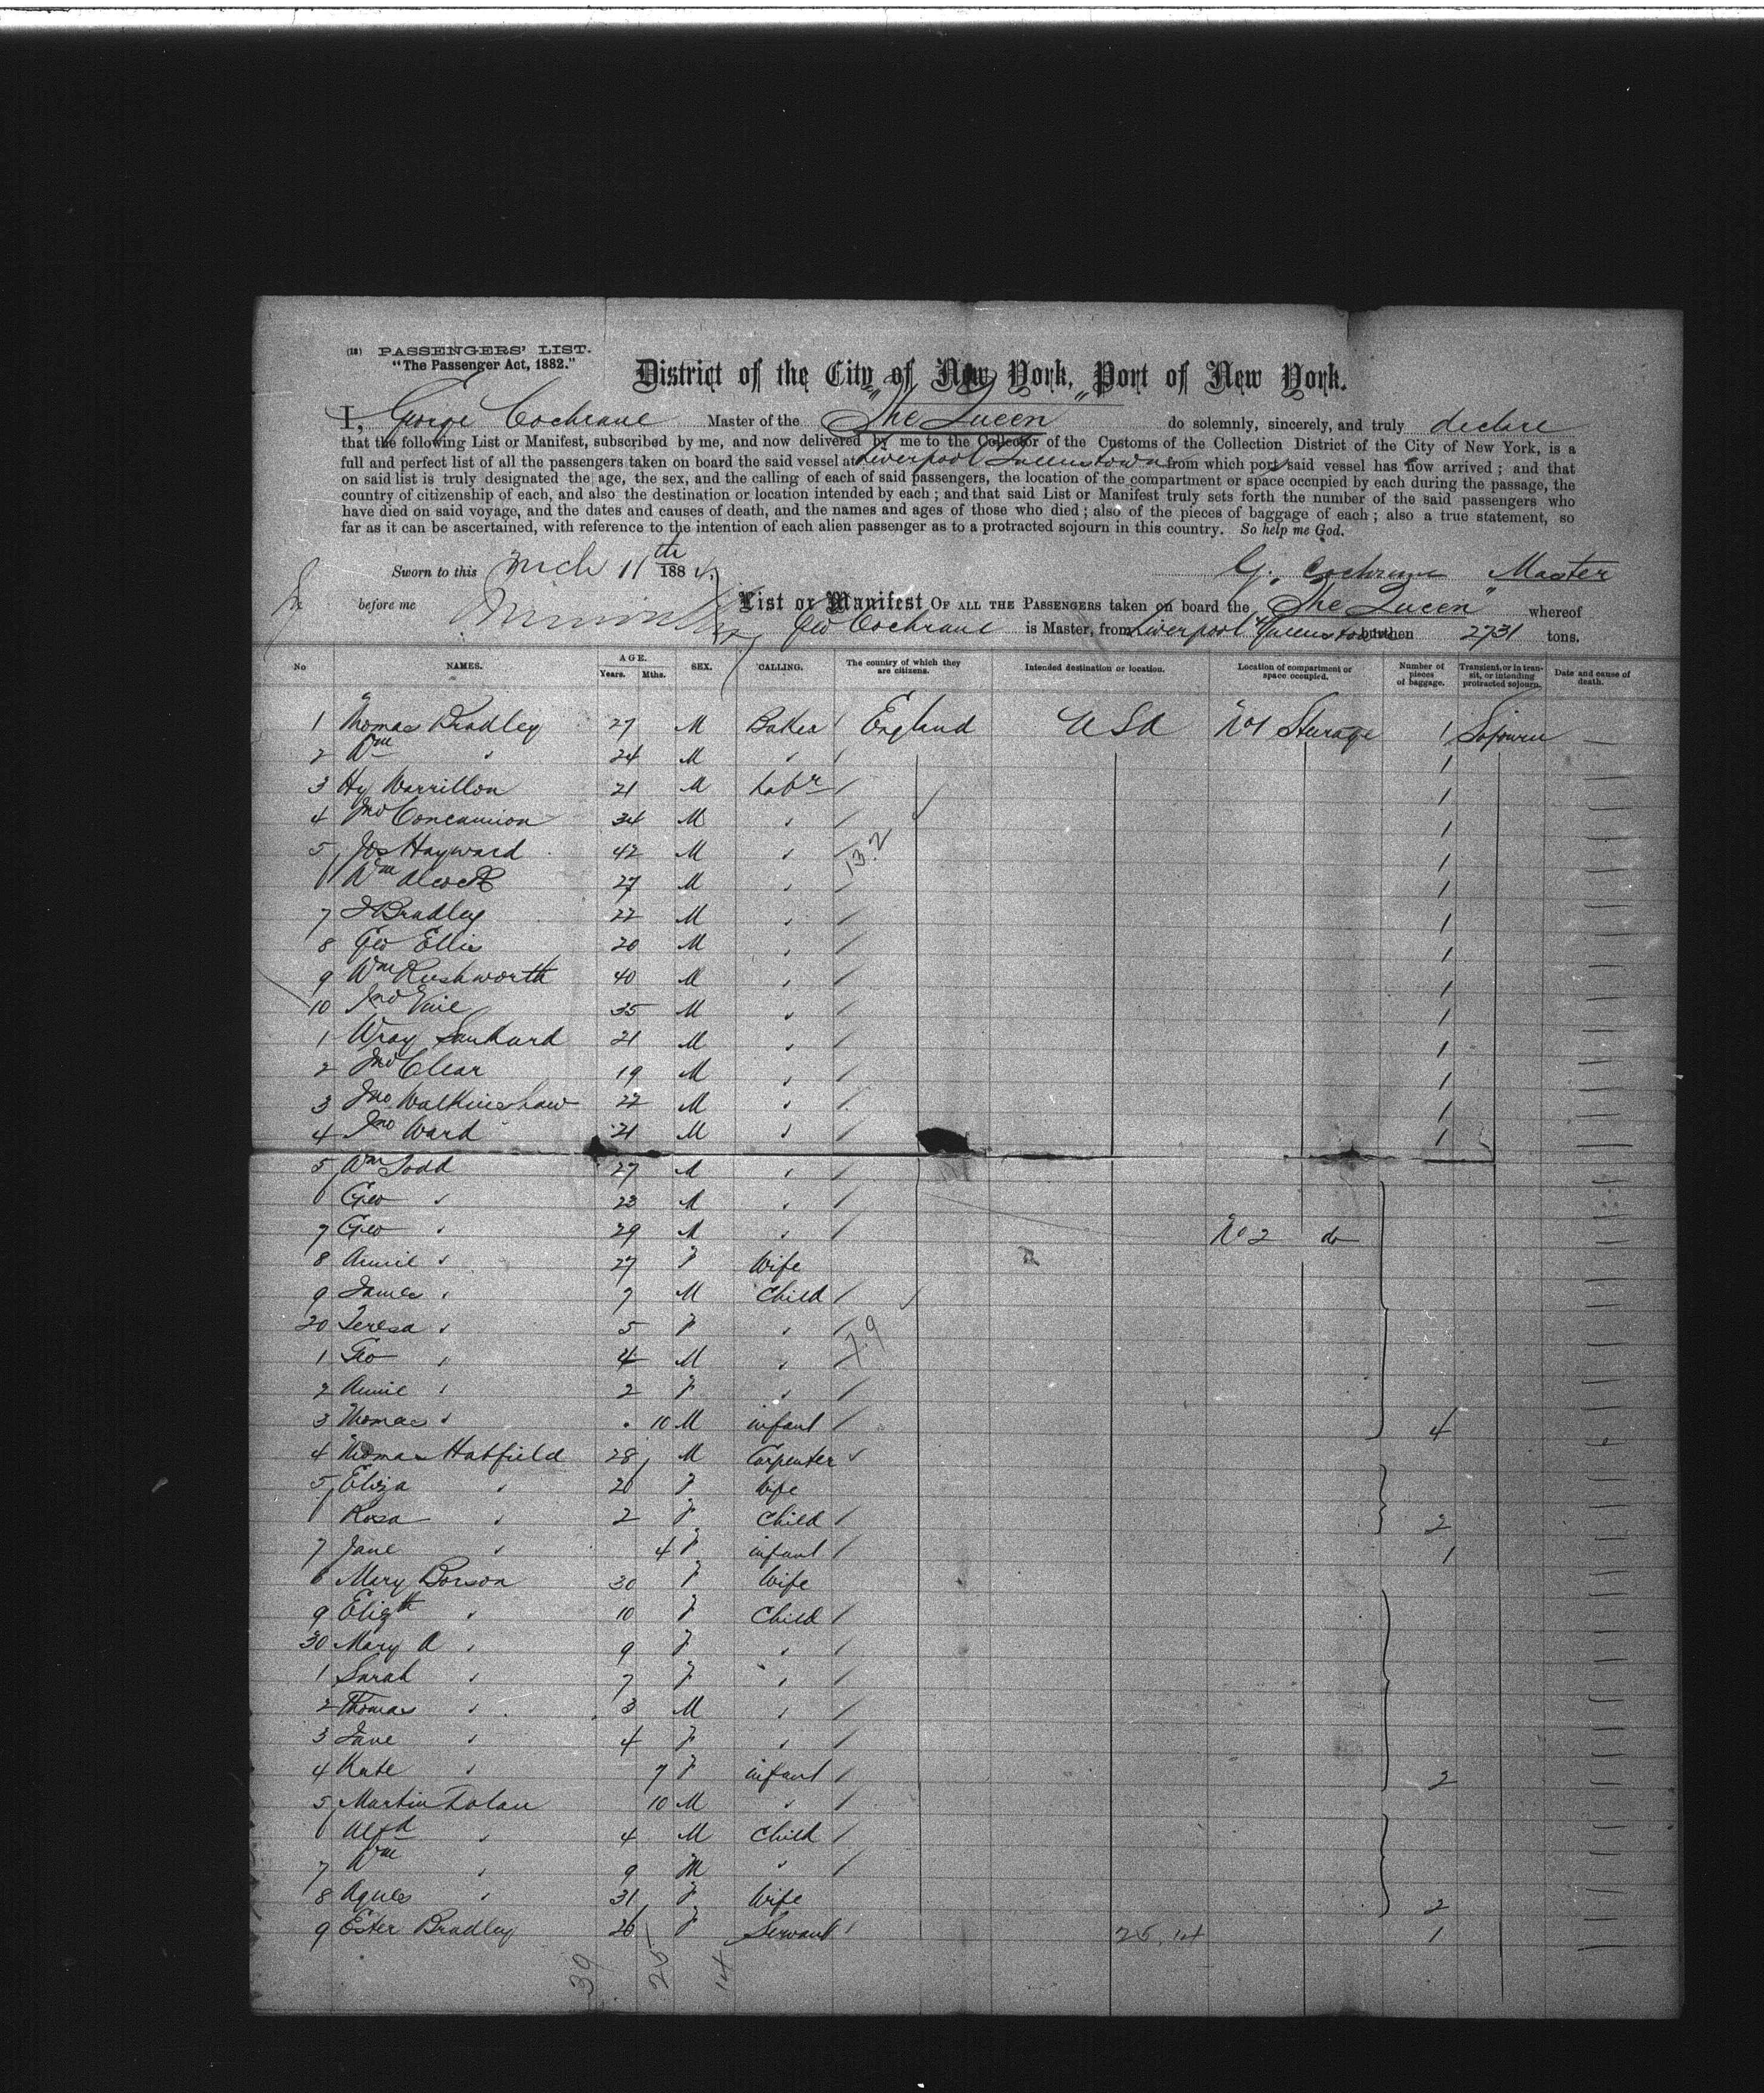 (18) PASSENGERS' LIST.
"The Passenger Act, 1882."
District of the City of New York, Port of New York.
I, George Cochrane Master of the "The Queen" do solemnly, sincerely, and truly declare
that the following List or Manifest, subscribed by me, and now delivered by me to the Collector of the Customs of the Collection District of the City of New York, is a
full and perfect list of all the passengers taken on board the said vessel at Liverpool Queenstown from which port said vessel has now arrived; and that
on said list is truly designated the age, the sex, and the calling of each of said passengers, the location of the compartment or space occupied by each during the passage, the
country of citizenship of each, and also the destination or location intended by each; and that said List or Manifest truly sets forth the number of the said passengers who
have died on said voyage, and the dates and causes of death, and the names and ages of those who died; also of the pieces of baggage of each; also a true statement, so
far as it can be ascertained, with reference to the intention of each alien passenger as to a protracted sojourn in this country. So help me God.
Sworn to this Mch 11th 1884. G. Cochrane Master
before me
List or Manifest OF ALL THE PASSENGERS taken on board the "The Queen" whereof
Geo Cochrane is Master, from Liverpool & Queenstown burthen 2731 tons.
No NAMES. AGE. Years. Mths. SEX. CALLING. The country of which they are citizens. Intended destination or location. Location of compartment or space occupied. Number of pieces of baggage. Transient, or in transit, or intending protracted sojourn. Date and cause of death.
1 Thomas Bradley 27 M Baker England USA No 1 Steerage 1 Sojourn —
2 Wm " 24 M " 1 —
3 Hy Warrillon 21 M Labr 1 —
4 Jno Concannon 34 M " 1 —
5 Jos Hayward 42 M " 13.2 1 —
6 Wm Alcock 27 M " 1 —
7 J Bradley 22 M " 1 —
8 Geo Ellis 20 M " 1 —
9 Wm Rushworth 40 M " 1 —
10 Jno Vine 35 M " 1 —
1 Wray 21 M " 1 —
2 Jno Clear 19 M " 1 —
3 Jno Walkinshaw 22 M " 1 —
4 Jno Ward 21 M " 1 —
5 Wm Todd 27 M " —
6 Geo " 23 M " —
7 Geo " 29 M " No 2 do —
8 Annie " 27 F Wife —
9 James " 7 M Child —
20 Teresa " 5 F " 7.9 —
1 Geo " 4 M " —
2 Annie " 2 F " —
3 Thomas " 10 M infant 4 —
4 Thomas Hatfield 28 M Carpenter —
5 Eliza " 26 F Wife —
6 Rosa " 2 F Child 2 —
7 Jane " 4 F infant 1 —
8 Mary Borson 30 F Wife —
9 Elizth " 10 F Child —
30 Mary A " 9 F " —
1 Sarah " 7 F " —
2 Thomas " 3 M " —
3 Jane " 4 F " —
4 Kate " 7 F infant 2 —
5 Martin Dolan 10 M " —
6 Alfd " 4 M Child —
7 Wm " 9 M " —
8 Agnes " 31 F Wife 2 —
9 Ester Bradley 26 F Servant 25.14 1 —
39 25 14